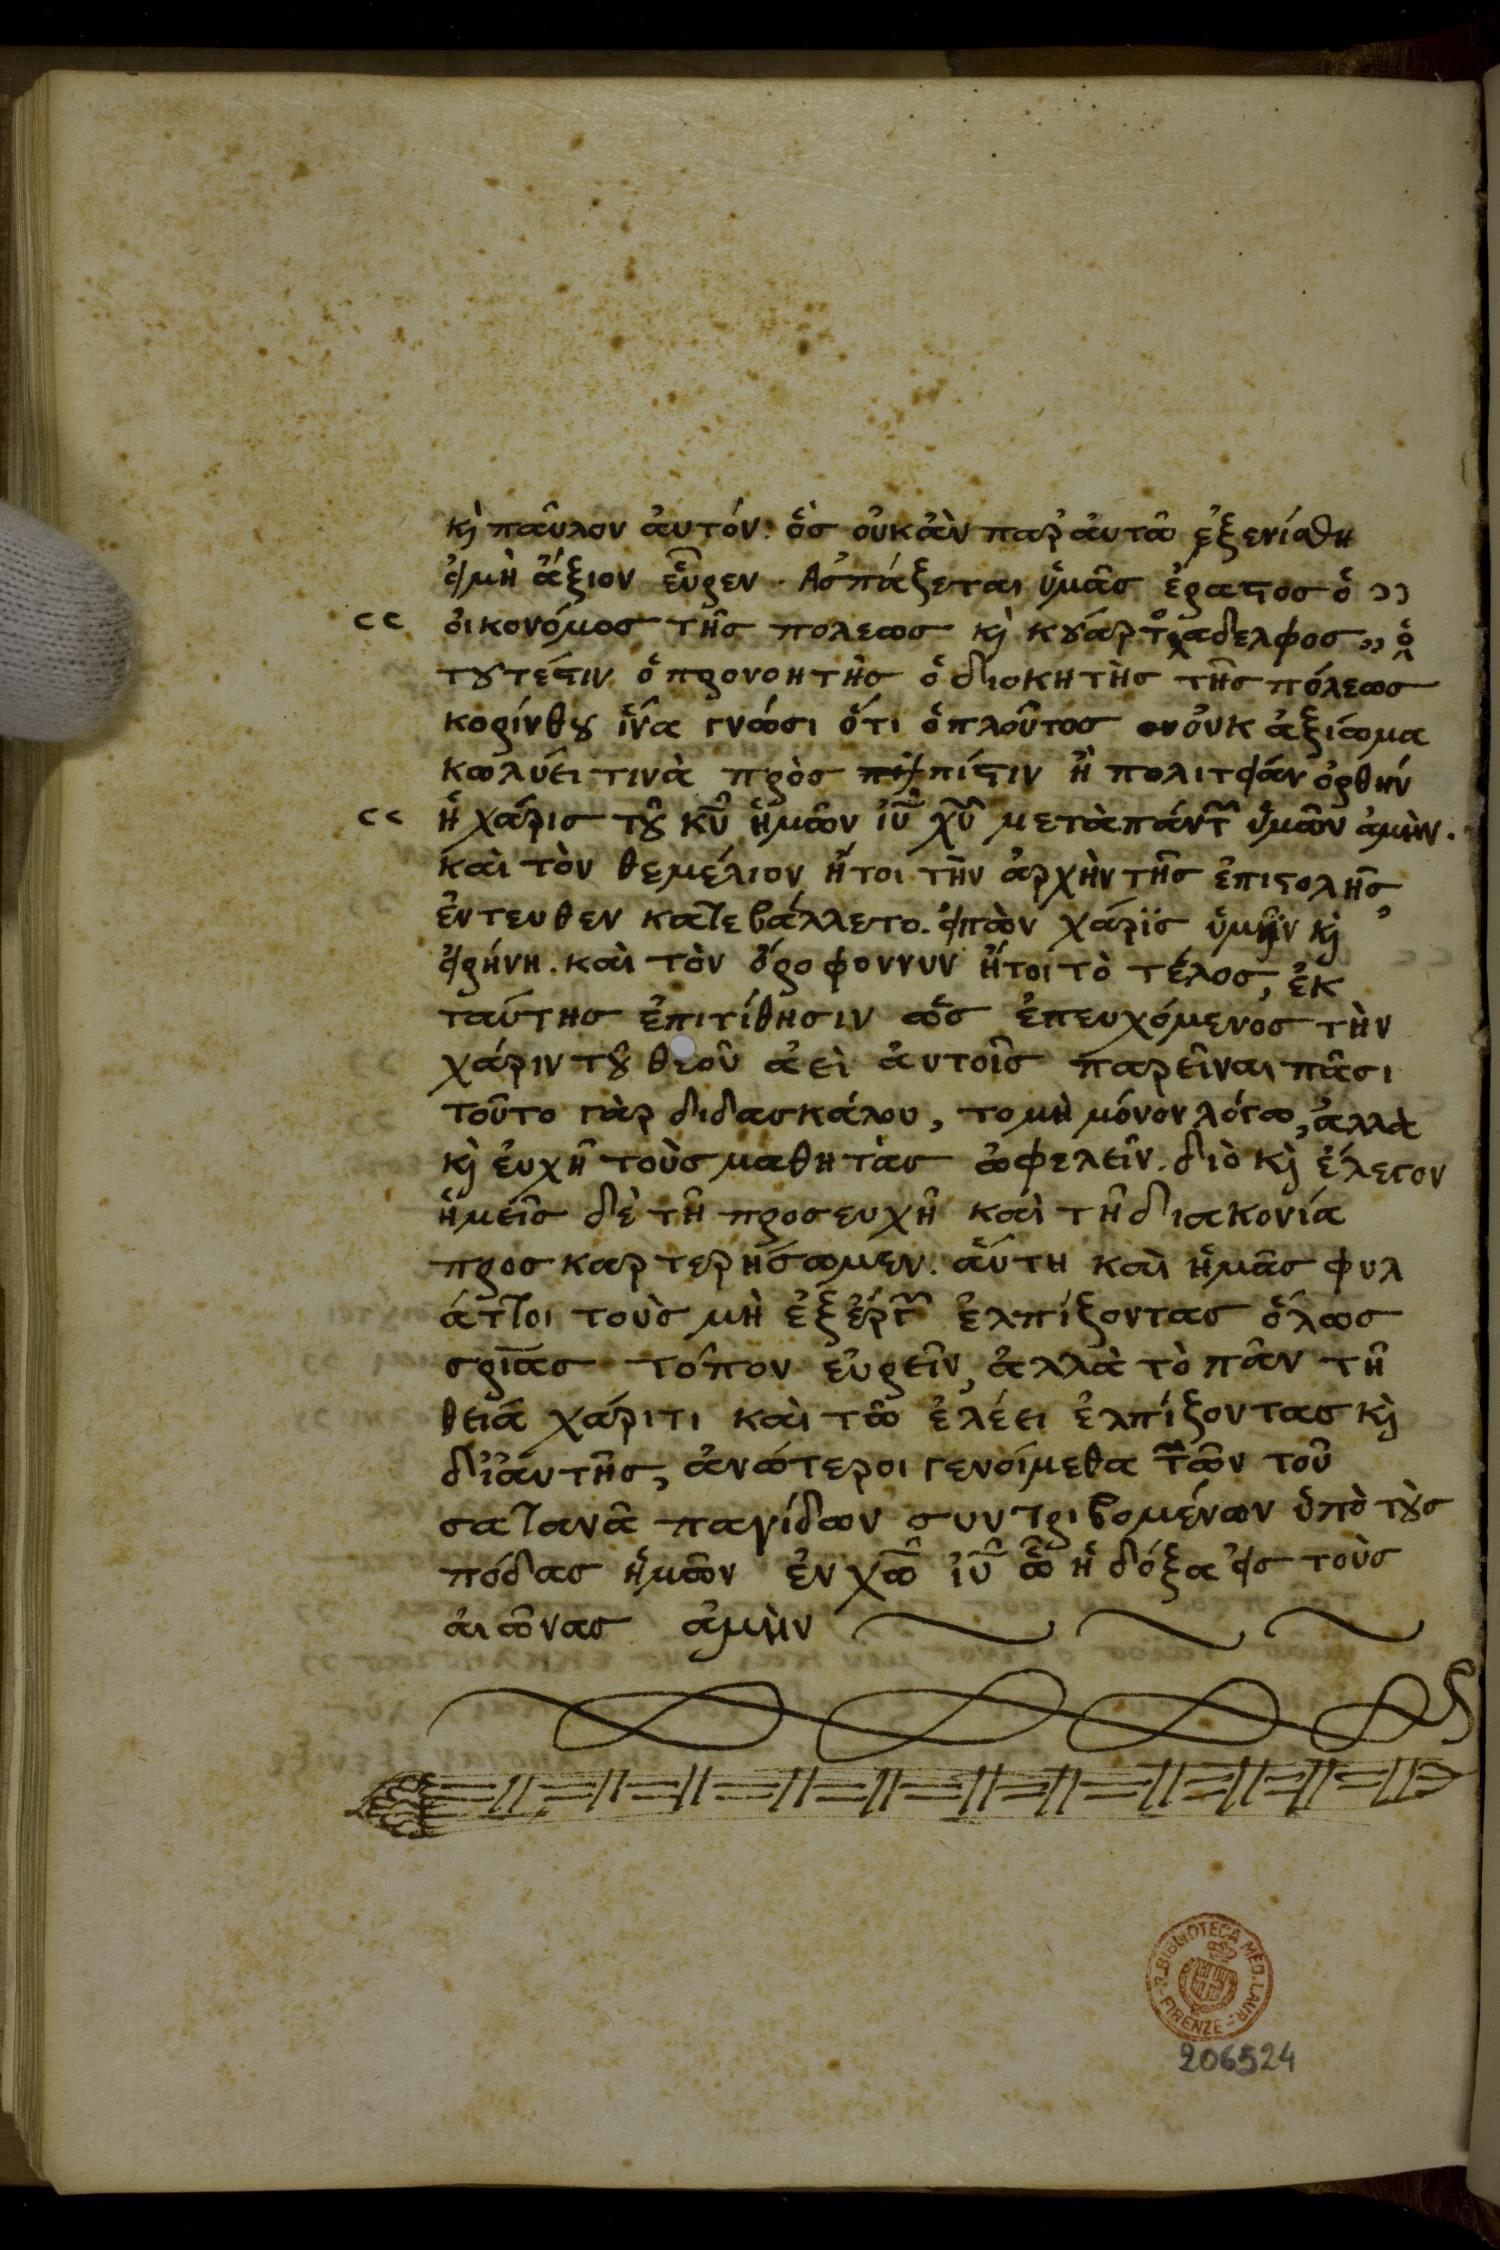 κὶ παῦλον ἀυτόν· ὃσ οὐκἀὰν παρἀυτῶ ἐξενίσθη
εἰμὴ ἄξιον εὗρεν · Ἀσπάζεται ὑμᾶσ ἔραϛοσ ὁ ››
‹‹ ὀικονόμοσ τῆσ πολεωσ κὶ κȣάρτοσ ὁ αδελφοσ ››
τȣτέϛιν ὁ προνοητὴσ ὁ διοκητὴσ τῆσ πόλεωσ
κορίνθȣ ἵνα γνῶσι ὅτι ὁ πλοῦτοσ οὐκ ἀξίωμα
κωλύει τινὰ πρὸσ πίϛιν ἢ πολιτείαν ὀρθήν
‹‹ ἡ χάρισ τȣ κυ̅ ἡμῶν ἰυ̅ χυ̅ μετὰ πάντ̅ ὑμῶν ἀμὴν.
καὶ τὸν θεμέλιον ἤτοι τὴν ἀρχὴν τῆσ ἐπιϛολῆσ,
ἐντευθεν κατεβάλλετο. εἰπὼν χάρϊσ ὑμῖν κὶ
εἰρήνη. καὶ τὸν ὄροφον νυν ἤτοι τὸ τέλοσ, ἐκ
ταύτησ ἐπιτίθησιν ὡσ ἐπευχόμενοσ τὴν
χάριν τȣ θεοῦ ἀεὶ ἀυτοῖσ παρεῖναι πᾶσι
τοῦτο γὰρ διδασκάλου, το μὴ μόνον λόγω, ἀλλὰ
κὶ ἐυχῆ τοὺσ μαθητὰσ ὠφελεῖν. διὸ κὶ ἔλεγον
ἡμεῖσ δὲ τῆ προσευχῆ καὶ τῆ διακονία
προσκαρτερήσωμεν. ἅυτη καὶ ἡμᾶσ φυλ
άττοι τοὺσ μὴ ἐξ ἔργ̅ ἐλπίζοντασ ὅλωσ
σρίασ τόπον εὑρεῖν, ἀλλὰ τὸ πᾶν τῆ
θεία χάριτι καὶ τῶ ἐλέει ἐλπίζοντασ κὶ
δἰἀυτῆσ, ἀνώτεροι γενοίμεθα τῶν τοῦ
σατανᾶ παγίδων συντριβομένων ὑπὸ τȣσ
πόδασ ἡμῶν ἐν χω̅ ἰυ̅ ὧ ἡ δόξα εἰσ τοὺσ
ἀιῶνασ ἀμὴν
R. BIBLIOTECA MED. LAUR. FIRENZE
206524